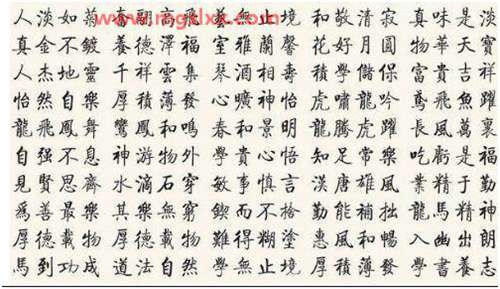 www.mgxlxx.com
人淡如菊 翻高飛 無止境 和敬清寂 真味是淡
真金不鍍 養德澤福 室雅蘭馨 花好月圓 物華天寶
人杰地靈 千祥雲集 琴酒相壽 積學儲保 富貴吉祥
怡然自樂 厚積薄發 心曠神怡 虎嘯龍吟 鳶飛魚躍
龍飛鳳舞 鸞鳳和鳴 春和景明 龍騰虎躍 長風萬裏
自强不息 神游物外 學貴心悟 知足常樂 吃虧是福
見賢思齊 水滴石穿 敏事慎言 漢唐雄風 業精于勤
爲善最樂 其樂無窮 鍥而不捨 勤能補拙 龍馬精神
厚德載物 厚德載物 難得糊塗 惠風和暢 入幽出朗
馬到功成 道法自然 學無止境 厚積薄發 學書養志